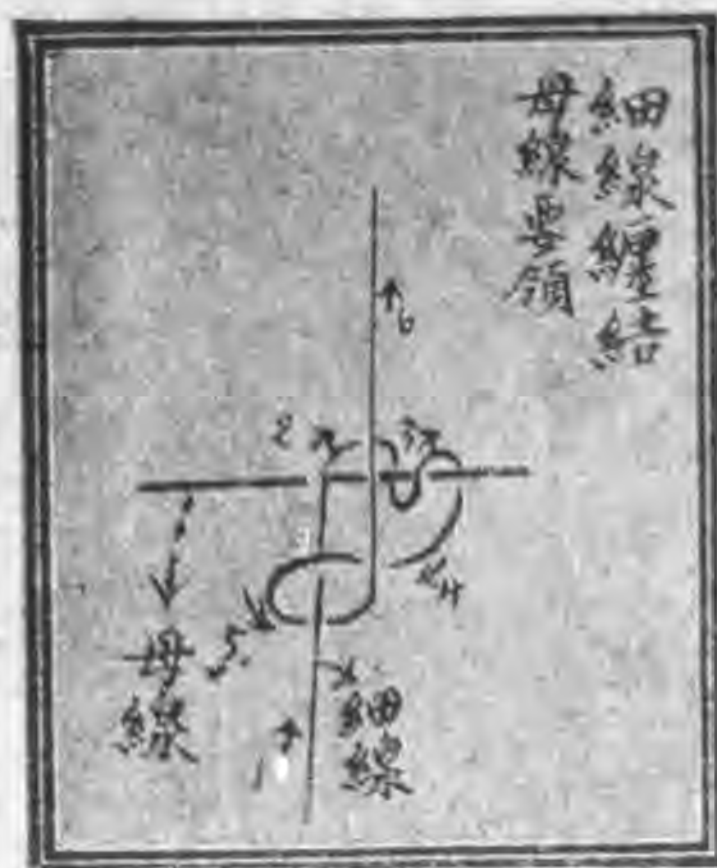 細線纏結
母線要領
6
2
3
4
5
母線
細線
1